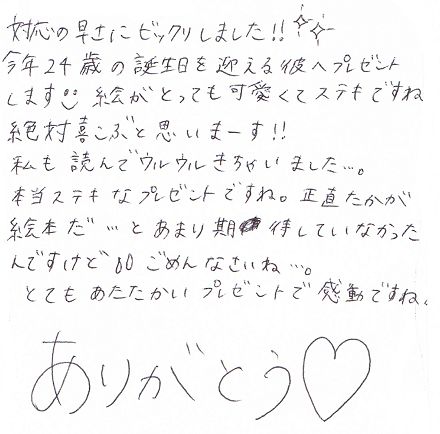 対応の早さにビックリしました!!
今年24歳の誕生日を迎える彼へプレゼント
します 絵がとっても可愛くてステキですね
絶対喜こぶと思いまーす!!
私も読んでウルウルきちゃいました…。
本当ステキなプレゼントですね。正直たかが
絵本だ…とあまり期待していなかった
んですけど ごめんなさいね…。
とてもあたたかいプレゼントで感動ですね。
ありがとう♡